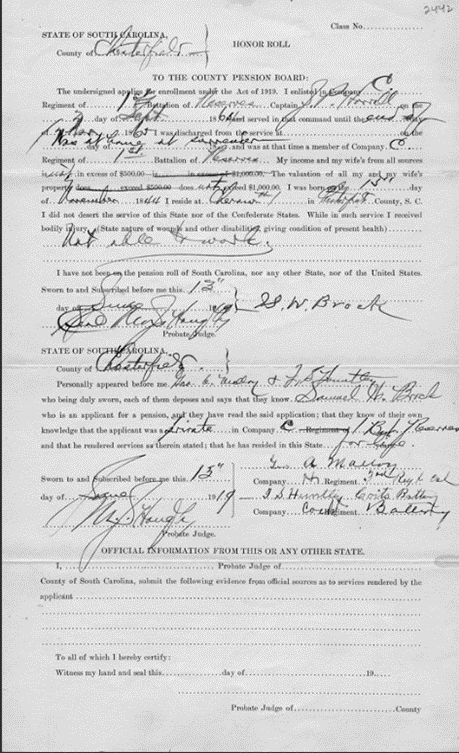 2442
Class No.
STATE OF SOUTH CAROLINA,
County of Chesterfield
HONOR ROLL
TO THE COUNTY PENSION BOARD:
The undersigned applies for enrollment under the Act of 1919. I enlisted in Company C
Regiment of 1st Battalion of Reserves Captain on the
day of Sept 1864 and served in that command until the end
of 1865 I was discharged from the service at on the
Was at home at surrender
day of and was at that time a member of Company C
Regiment of 1st Battalion of Reserves. My income and my wife's from all sources
is not in excess of $500.00 is in excess of $1,000.00. The valuation of all my and my wife's
property does exceed $500.00 does not exceed $1,000.00. I was born the 15th day
of November 1844 I reside at Cheraw in County, S. C.
I did not desert the service of this State nor of the Confederate States. While in such service I received
bodily injury (State nature of wounds and other disabilities giving condition of present health)
Not able to work.
I have not been on the pension roll of South Carolina, nor any other State, nor of the United States.
Sworn to and Subscribed before me this 13"
day of June 1919
S. W. Brock
Probate Judge.
STATE OF SOUTH CAROLINA,
County of Chesterfield
Personally appeared before me &
who being duly sworn, each of them deposes and says that they know Samuel W. Brock
who is an applicant for a pension, and they have read the said application; that they know of their own
knowledge that the applicant was a private in Company C Regiment 1 Reserves
and that he rendered services as therein stated; that he has resided in this State for
Sworn to and Subscribed before me this 13"
day of June 1919
Company H Regiment
Company Battery
Company Regiment Battery
Probate Judge.
OFFICIAL INFORMATION FROM THIS OR ANY OTHER STATE.
I, Probate Judge of
County of South Carolina, submit the following evidence from official sources as to services rendered by the
applicant
To all of which I hereby certify:
Witness my hand and seal this day of 19
Probate Judge of County